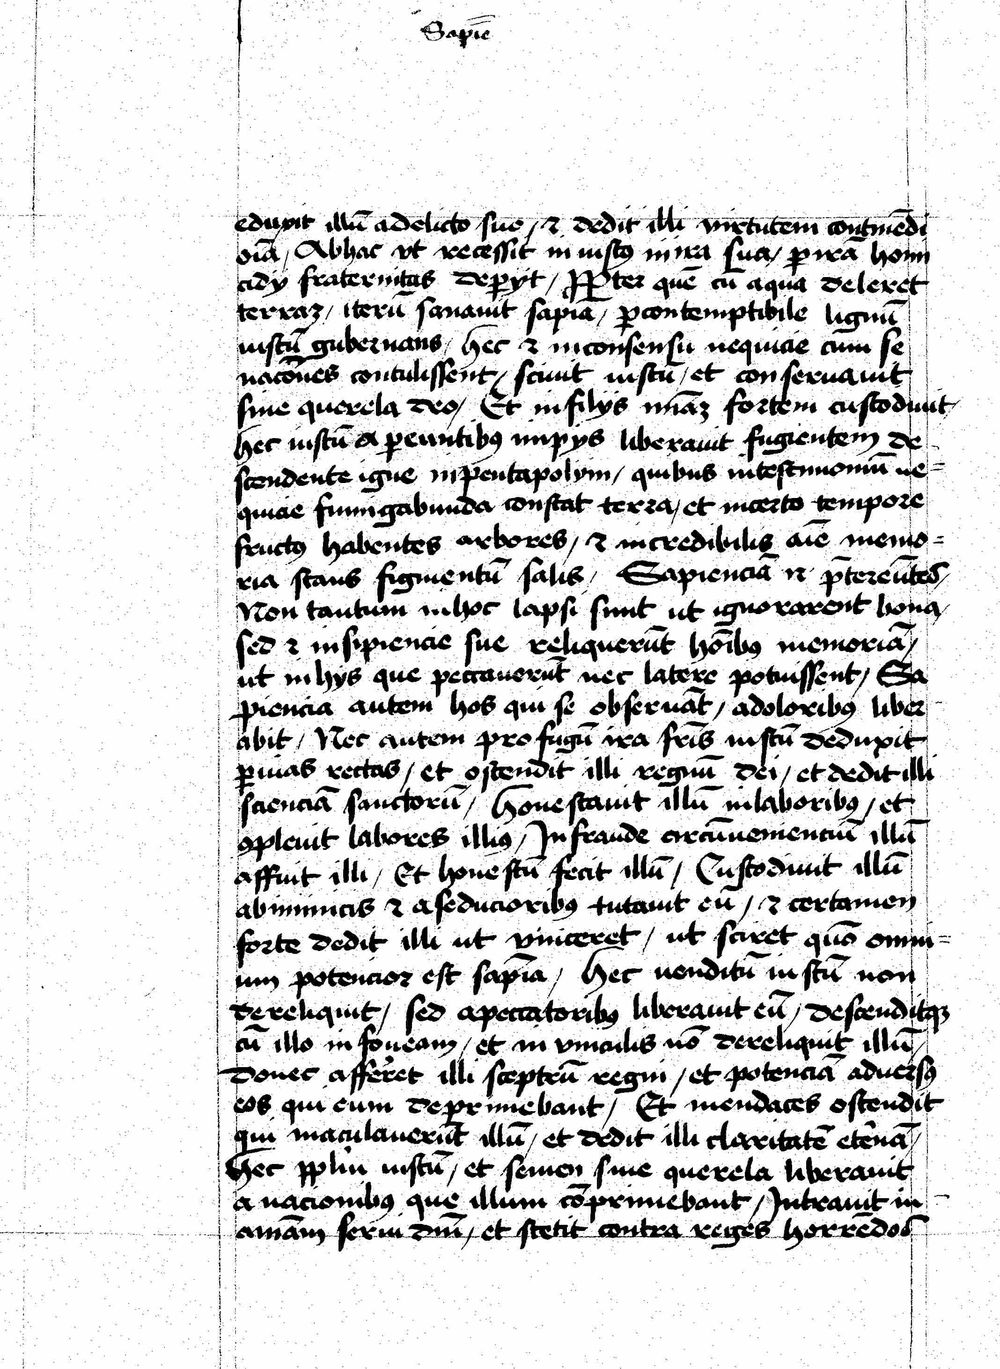 Sapiē
eduxit illū adelicto suo / ⁊ dedit illi virtutem continēdi
oīa / Abhac vt recessit in iustꝰ inira sua / ꝑ irā homi
cidy fraternitas deꝑyt / Ꝓpter quē cū aqua deleret
terraꝫ / iterū sanavit sapīa / ꝑcontemptibile lignū
iustū gubernans / hec ⁊ inconsensu nequicie cum se
nacōnes contulissent / scivit iustū / et conservavit
sine querela deo / Et infilys mīaꝫ fortem custodivit /
hec iustū a pereuntibꝰ impys liberavit fugientem de
scendente igne inpentapolym / quibus intestimoniū ne=
quicie fumigabunda constat terra / et incerto tempore
fructꝰ habentes arbores / ⁊ incredibilis aīe memo=
ria stans figmentū salis / Sapienciā n̄ p̄tereūtes /
Non tantum inhoc lapsi sunt ut ignorarent bona /
sed ⁊ insipiencie sue reliquerūt hōibꝰ memoriā /
ut inhys que peccaverūt nec latere potuissent / Sa
piencia autem hos qui se observāt / adoloribꝰ liber
abit / Nec autem profugū ira frīs iustū deduxit
ꝑ vias rectas / et ostendit illi regnū dei / et dedit illi
scienciā sanctorū / honestavit illū inlaboribꝰ / et
ꝯplevit labores illiꝰ / Infraude circūveniencium illū
affuit illi / Et honestū fecit illū / Custodivit illū
abinimicis ⁊ aseductoribꝰ tutavit eū / ⁊ certamen
forte dedit illi ut vinceret / ut sciret quō omni=
um potencior est sapīa / hec venditū iustū non
dereliquit / sed apeccatoribꝰ liberavit eū / descenditqꝫ
cū illo infoveam / et in vinculis nō dereliquit illū /
donec afferret illi sceptrū regni / et potenciā adversꝰ
eos qui eum deprimebant / Et mendaces ostendit
qui maculaverūt illū / et dedit illi claritatē etnā /
hec pplm iustū / et semen sine querela liberavit
a nacionibꝰ que illum cōprimebant / Intravit in
animam servi dni / et stetit contra reges horrēdos